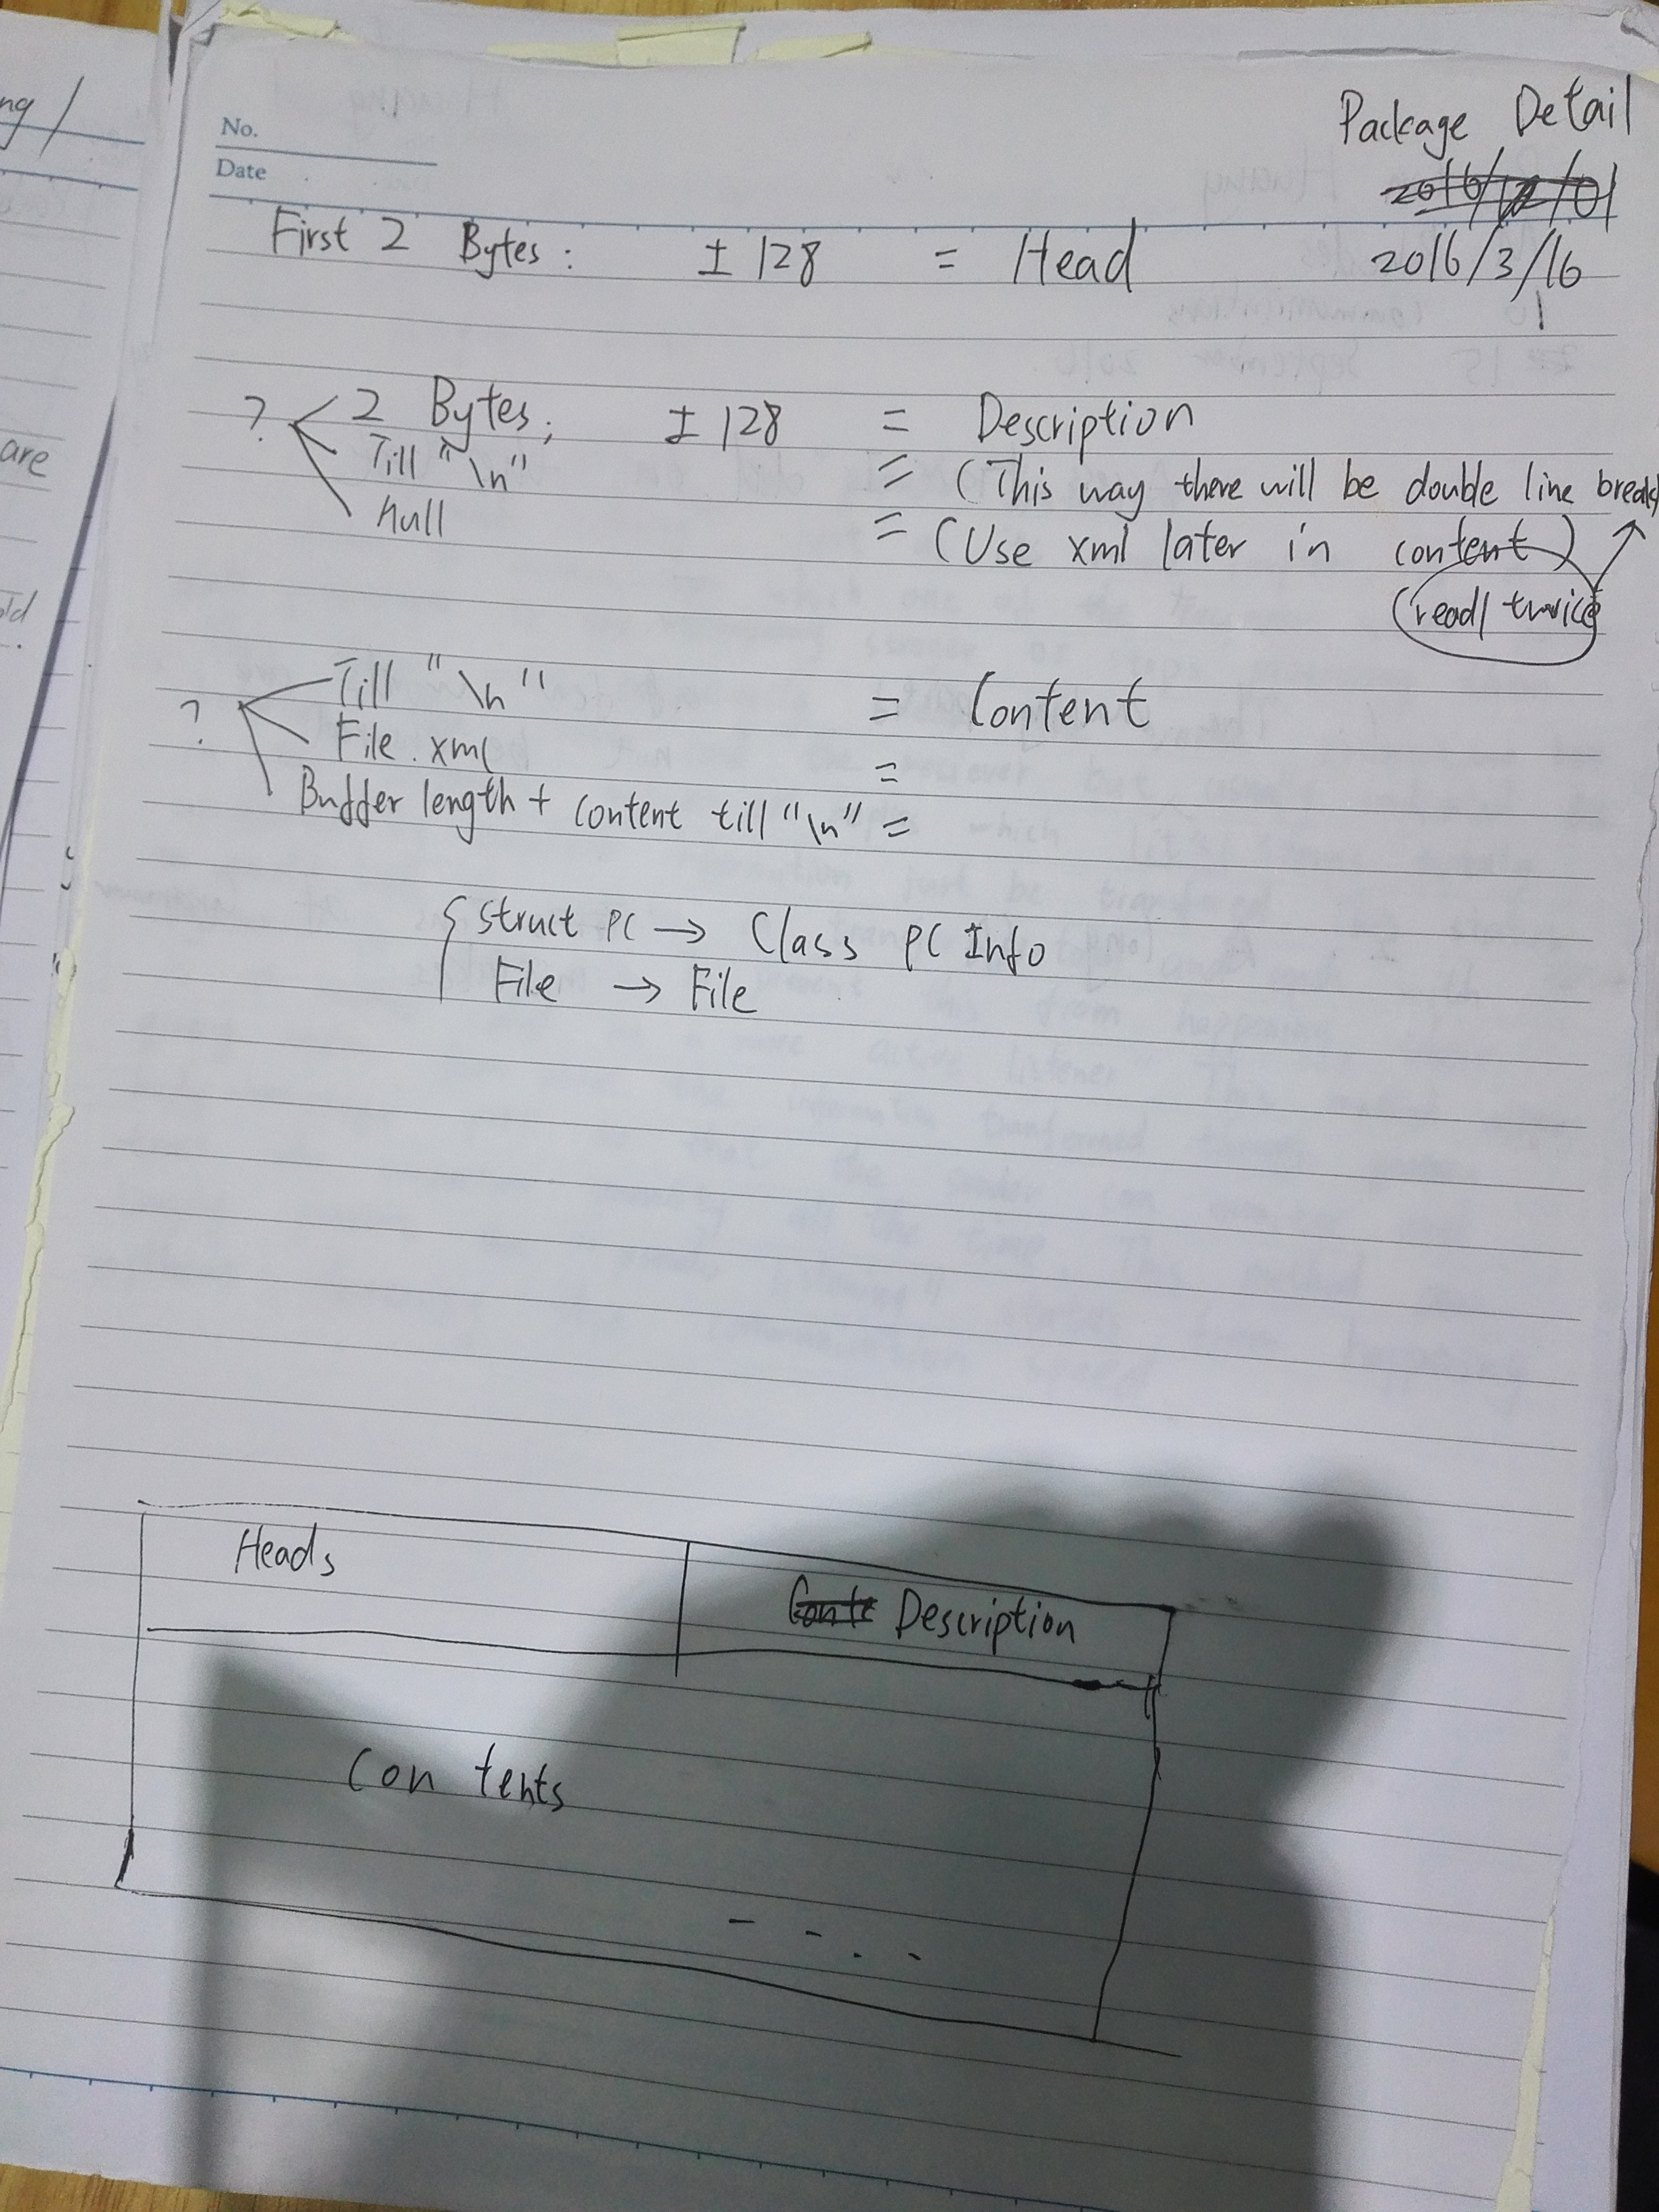 ng /
are
old
Package Detail
No.
Date
2016/12/01
First 2 Bytes : ± 128 = Head 2016/3/16
1
? 2 Bytes; ± 128 = Description
Till "\n" = (This way there will be double line break)
null = (Use xml later in content)
(read twice)
? Till "\n" = Content
File.xml =
Buffer length + content till "\n" =
{ Struct PC → Class PC Info
File → File
Heads
Conte Description
Contents
- - . .